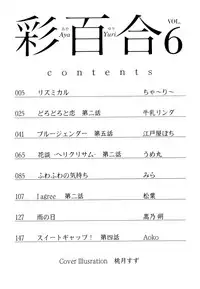 彩百合
Aya Yuri
VOL.6
contents
005 リズミカル ちゃ〜り〜
025 どろどろと恋 第二話 牛乳リンダ
041 ブルージェンダー 第五話 江戸屋ぽち
065 花談 -ヘリクリサム- 第二話 うめ丸
085 ふわふわの気持ち みら
107 I agree 第二話 松葉
127 雨の日 高乃 朔
147 スイートギャップ! 第四話 Aoko
Cover Illusration 桃月すず